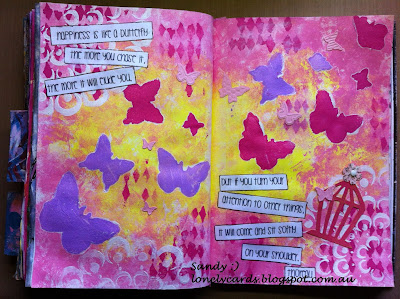 Happiness is like a butterfly
the more you chase it,
the more it will elude you,
but if you turn your
attention to other things,
it will come and sit softly
on your shoulder.
Thoreau
Sandy :)
lonelycards.blogspot.com.au